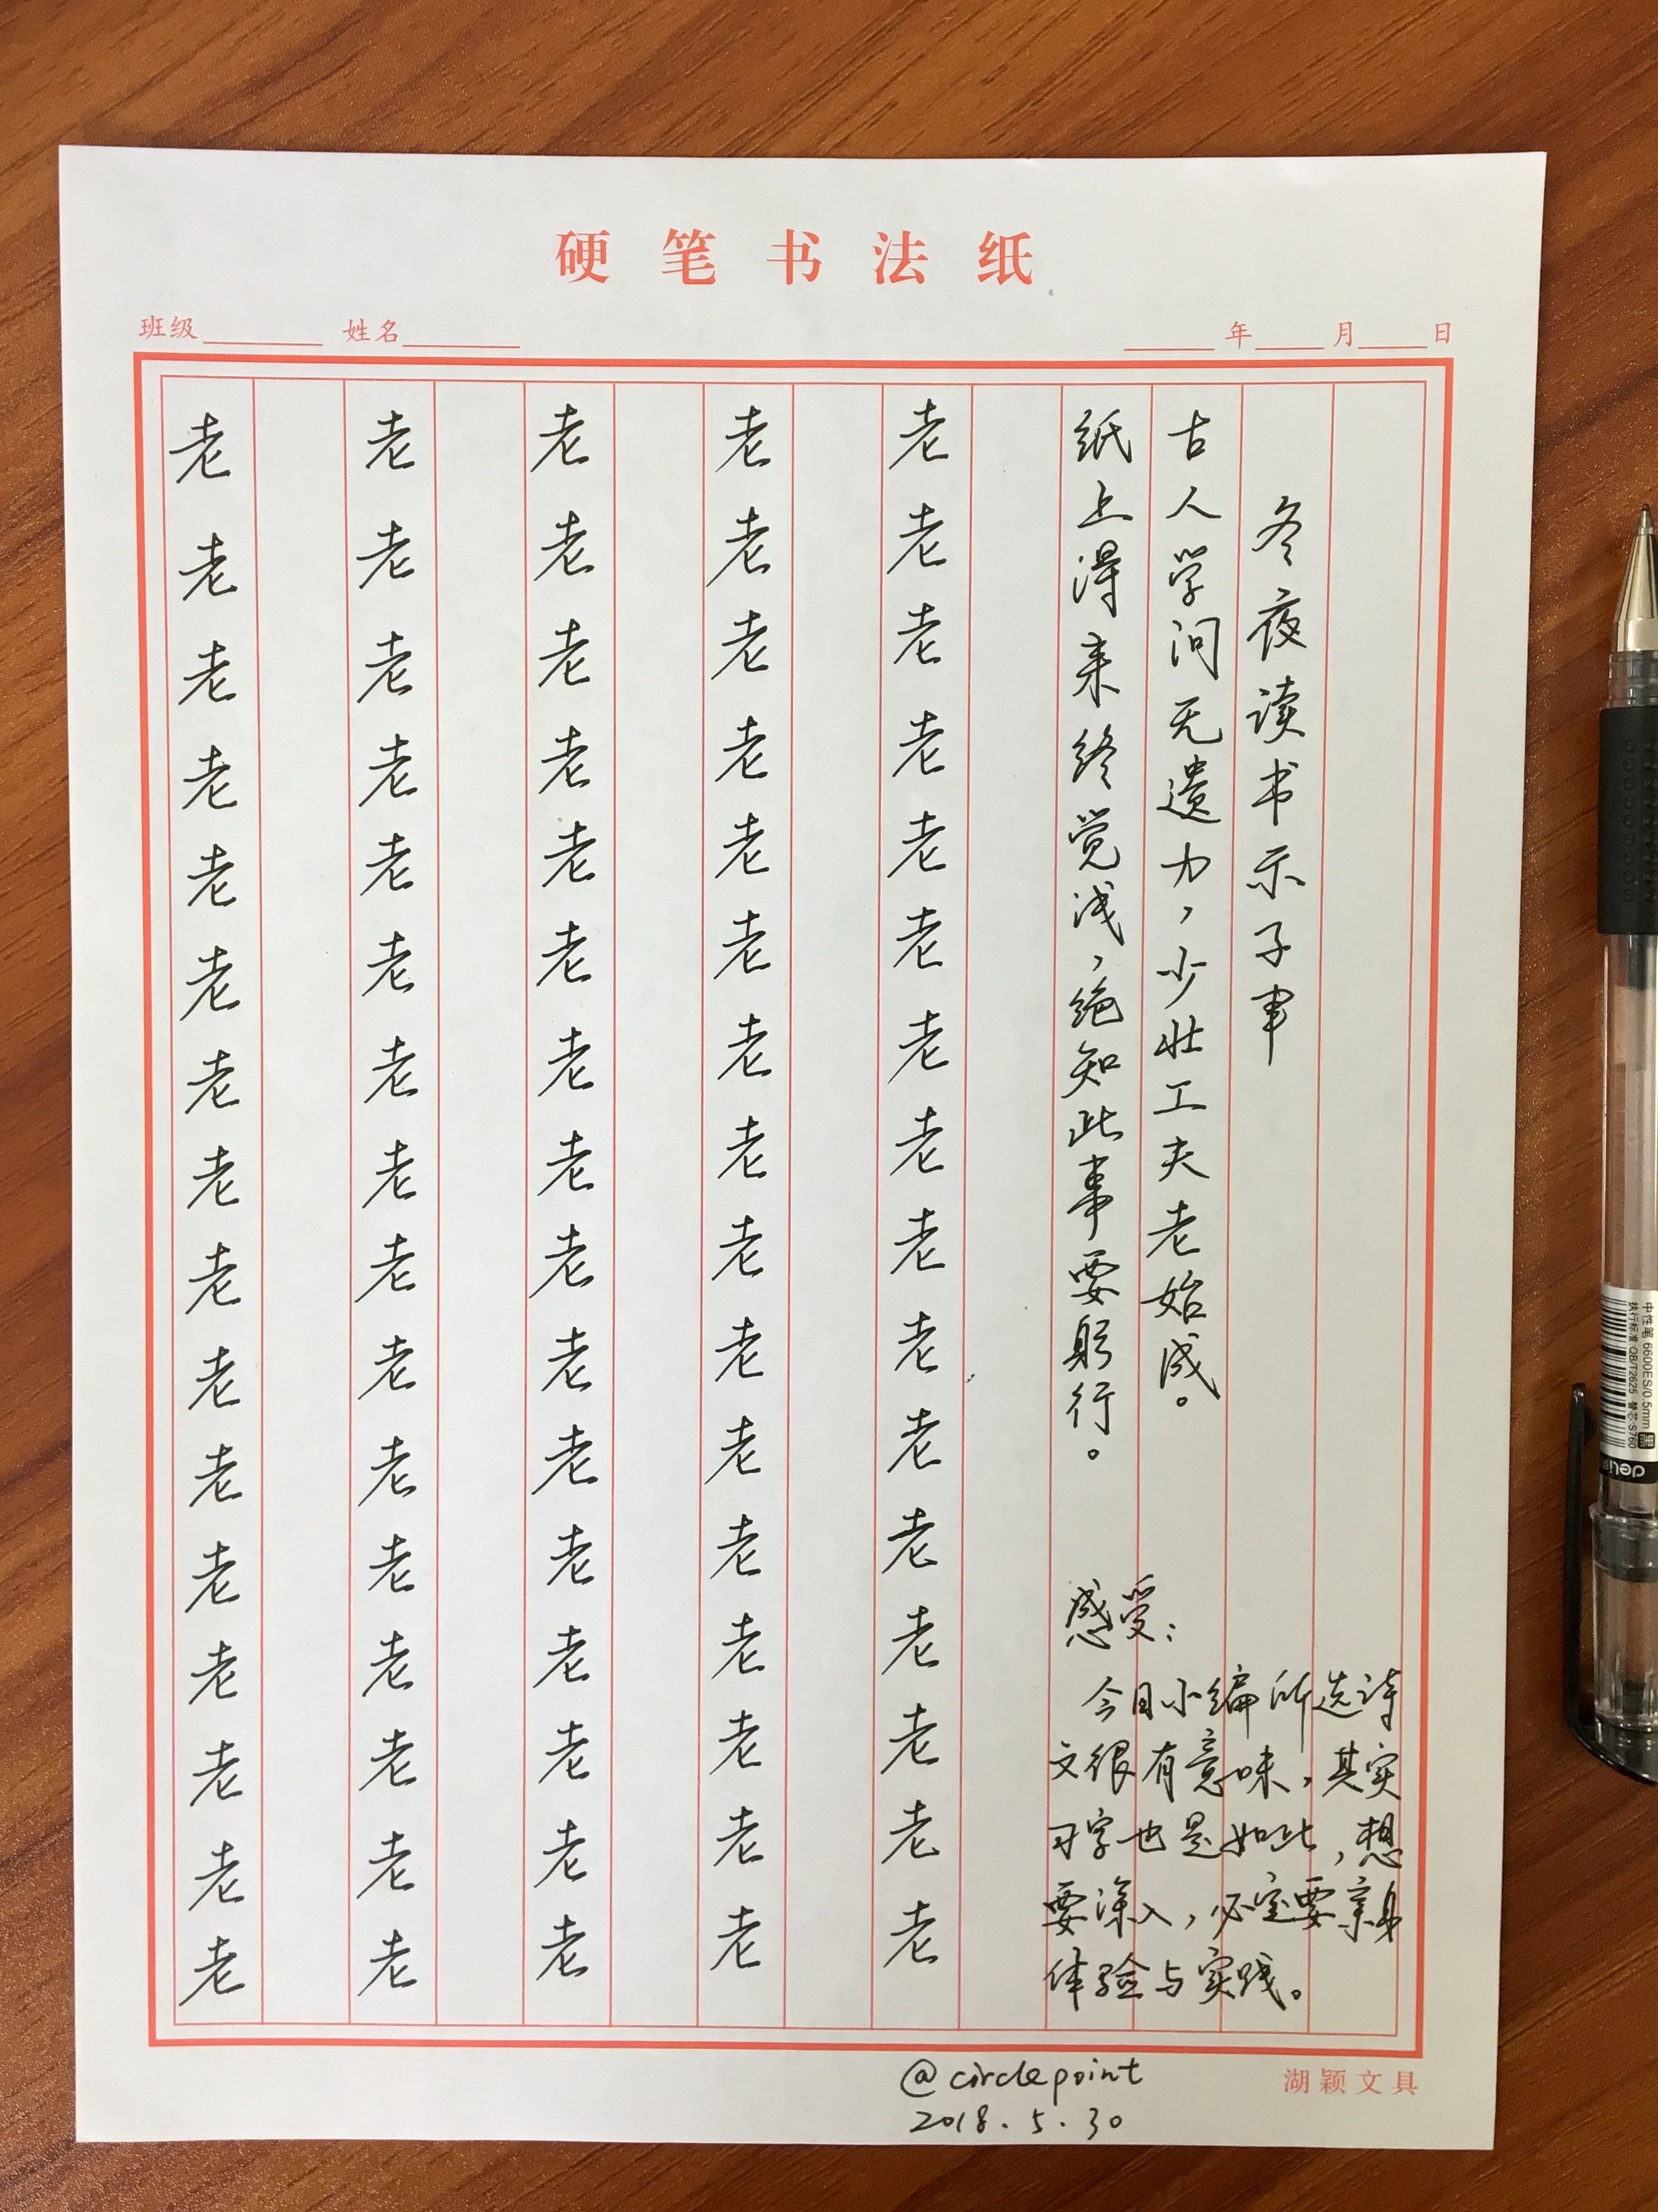 硬笔书法纸
班级 姓名 年 月 日
冬夜读书示子聿
古人学问无遗力，少壮工夫老始成。
纸上得来终觉浅，绝知此事要躬行。
老老老老老老老老老老老老老老老老
老老老老老老老老老老老老老老老老
老老老老老老老老老老老老老老老老
老老老老老老老老老老老老老老老老
老老老老老老老老老老老老老老老老
感受：
今日小编所选诗
文很有意味，其实
习字也是如此，想
要深入，必定要亲身
体验与实践。
@circlepoint
2018.5.30
湖颖文具
中性笔 6600ES/0.5mm 黑
执行标准:QB/T2625 替芯:S760
deli